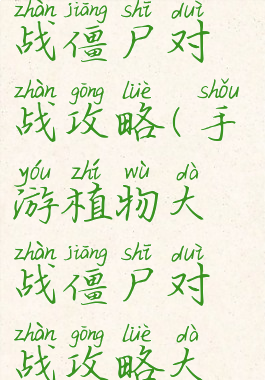 zhàn jiāng shī duì
战僵尸对
zhàn gōng lüè shǒu
战攻略(手
yóu zhí wù dà
游植物大
zhàn jiāng shī duì
战僵尸对
zhàn gōng lüè dà
战攻略大